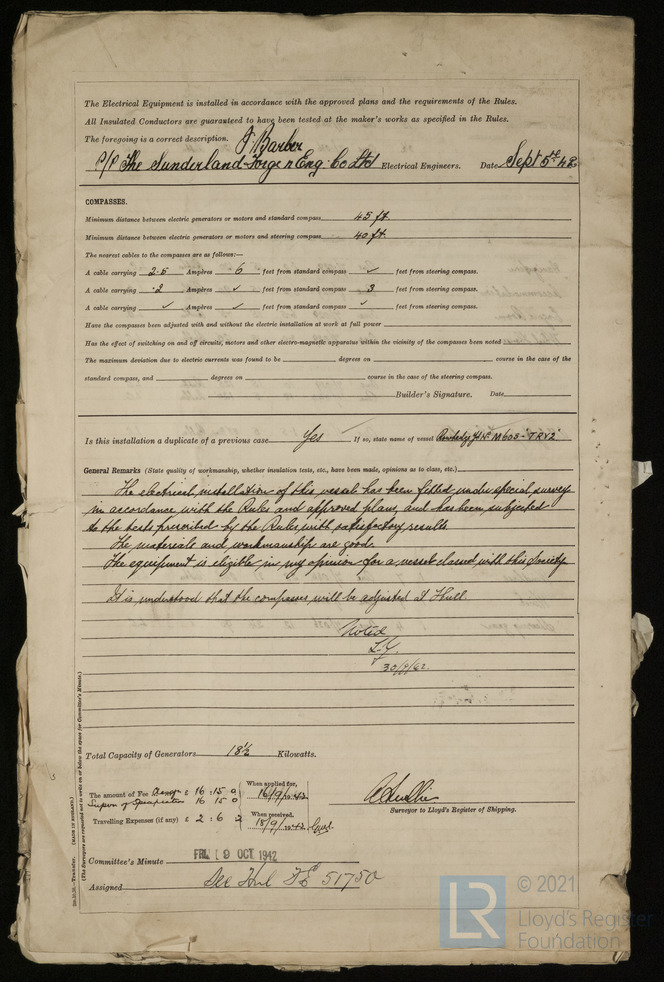 The Electrical Equipment is installed in accordance with the approved plans and the requirements of the Rules.
All Insulated Conductors are guaranteed to have been tested at the maker's works as specified in the Rules.
The foregoing is a correct description.
J Barber
P/P The Sunderland Forge & Eng: Co Ltd Electrical Engineers. Date Sept 5th 42
COMPASSES.
Minimum distance between electric generators or motors and standard compass 45 ft.
Minimum distance between electric generators or motors and steering compass 40 ft.
The nearest cables to the compasses are as follows:—
A cable carrying 2.5 Ampères 6 feet from standard compass ✓ feet from steering compass.
A cable carrying .2 Ampères ✓ feet from standard compass 3 feet from steering compass.
A cable carrying ✓ Ampères ✓ feet from standard compass ✓ feet from steering compass.
Have the compasses been adjusted with and without the electric installation at work at full power
Has the effect of switching on and off circuits, motors and other electro-magnetic apparatus within the vicinity of the compasses been noted
The maximum deviation due to electric currents was found to be degrees on course in the case of the
standard compass, and degrees on course in the case of the steering compass.
Builder's Signature. Date
Is this installation a duplicate of a previous case Yes If so, state name of vessel
General Remarks (State quality of workmanship, whether insulation tests, etc., have been made, opinions as to class, etc.)
The electrical installation of this vessel has been fitted under special survey
in accordance with the Rules and approved plans, and has been subjected
to the tests prescribed by the Rules, with satisfactory results.
The materials and workmanship are good.
The equipment is eligible in my opinion for a vessel classed with this Society.
It is understood that the compasses will be adjusted at Hull.
Noted
30/9/42.
Total Capacity of Generators 18½ Kilowatts.
The amount of Fee £ 16:15:0 When applied for, 16/9/1942
16 15 0
Travelling Expenses (if any) £ 2:6:2 When received, 18/9/1942
Surveyor to Lloyd's Register of Shipping.
Committee's Minute FRI. 9 OCT 1942
Assigned See Hul FE 51750
(MADE IN ENGLAND.)
(The Surveyors are requested not to write on or below the space for Committee's Minute.)
LR
© 2021
Lloyd's Register
Foundation